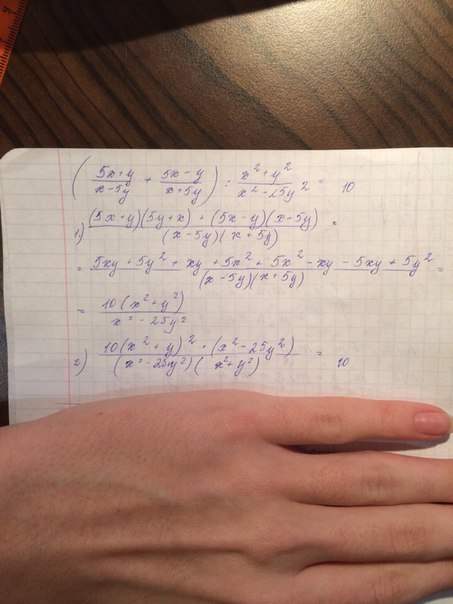 ( (5x+y)/(x-5y) + (5x-y)/(x+5y) ) : (x²+y²)/(x²-25y²) = 10
1) ((5x+y)(5y+x) + (5x-y)(x-5y))/((x-5y)(x+5y)) =
= (5xy + 5y² + xy + 5x² + 5x² - xy - 5xy + 5y²)/((x-5y)(x+5y)) =
= 10(x²+y²)/(x²-25y²)
2) (10(x²+y)² · (x²-25y²))/((x²-25y²)(x²+y²)) = 10